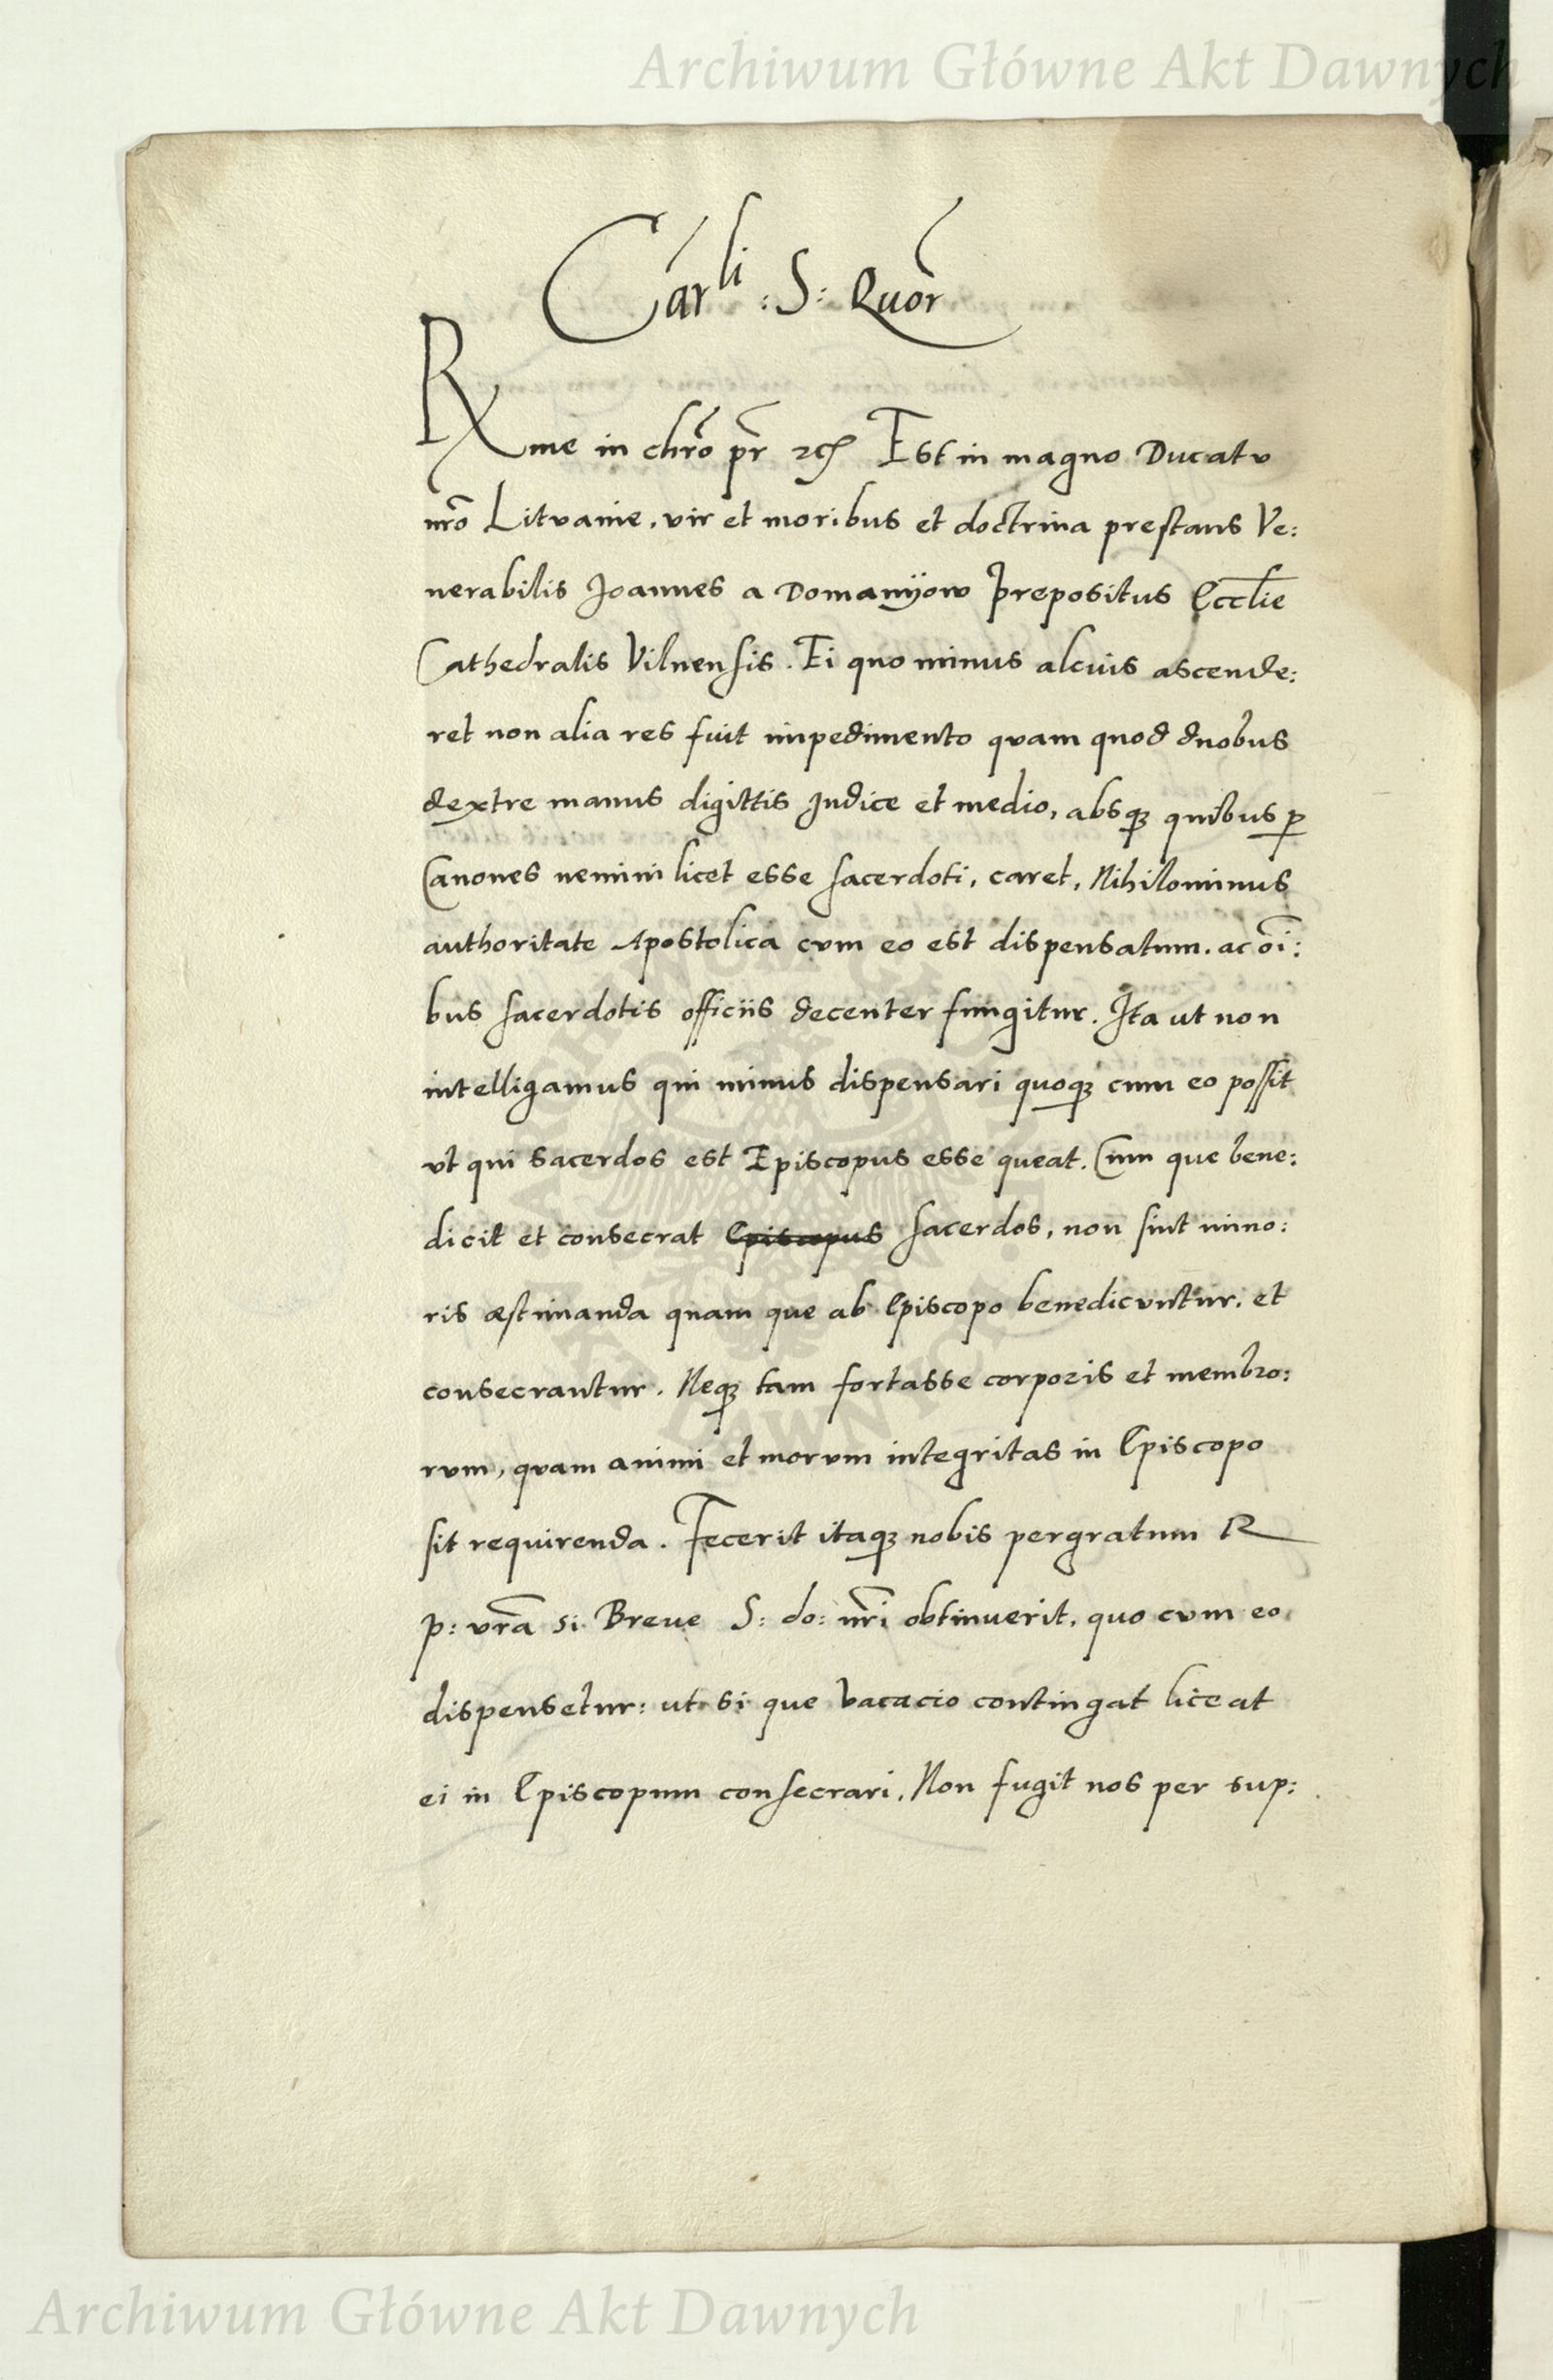 Archiwum Główne Akt Dawnych
Carli : S : Quor
Rme in chro pr 2c Est in magno Ducatv
nro Litvanie, vir et moribus et doctrina prestans Ve:
nerabilis Joannes a Domanyow Prepositus Ecclie
Cathedralis Vilnensis. Ei quo minus alcius ascende:
ret non alia res fuit impedimento qvam quod duobus
dextre manus digittis Judice et medio, absqꝫ quibus ꝑ
Canones nemini licet esse sacerdoti, caret, Nihilominus
authoritate Apostolica cvm eo est dispensatum. ac oi:
bus sacerdotis officiis decenter fungitur. Ita ut non
intelligamus qui minus dispensari quoqꝫ cum eo possit
vt qui sacerdos est Episcopus esse queat. Cum que bene:
dicit et consecrat Episcopus sacerdos, non sint mino:
ris æstimanda quam que ab Episcopo benedicvntur, et
consecrantur. Neqꝫ tam fortasse corporis et membro:
rvm, qvam animi et morvm integritas in Episcopo
sit requirenda. Fecerit itaqꝫ nobis pergratum R
p: vra si Breue S: do: nri obtinuerit, quo cvm eo
dispensetur: ut si que vacacio contingat liceat
ei in Episcopum consecrari, Non fugit nos per sup:
ARCHIWUM GŁÓWNE AKT DAWNYCH
Archiwum Główne Akt Dawnych